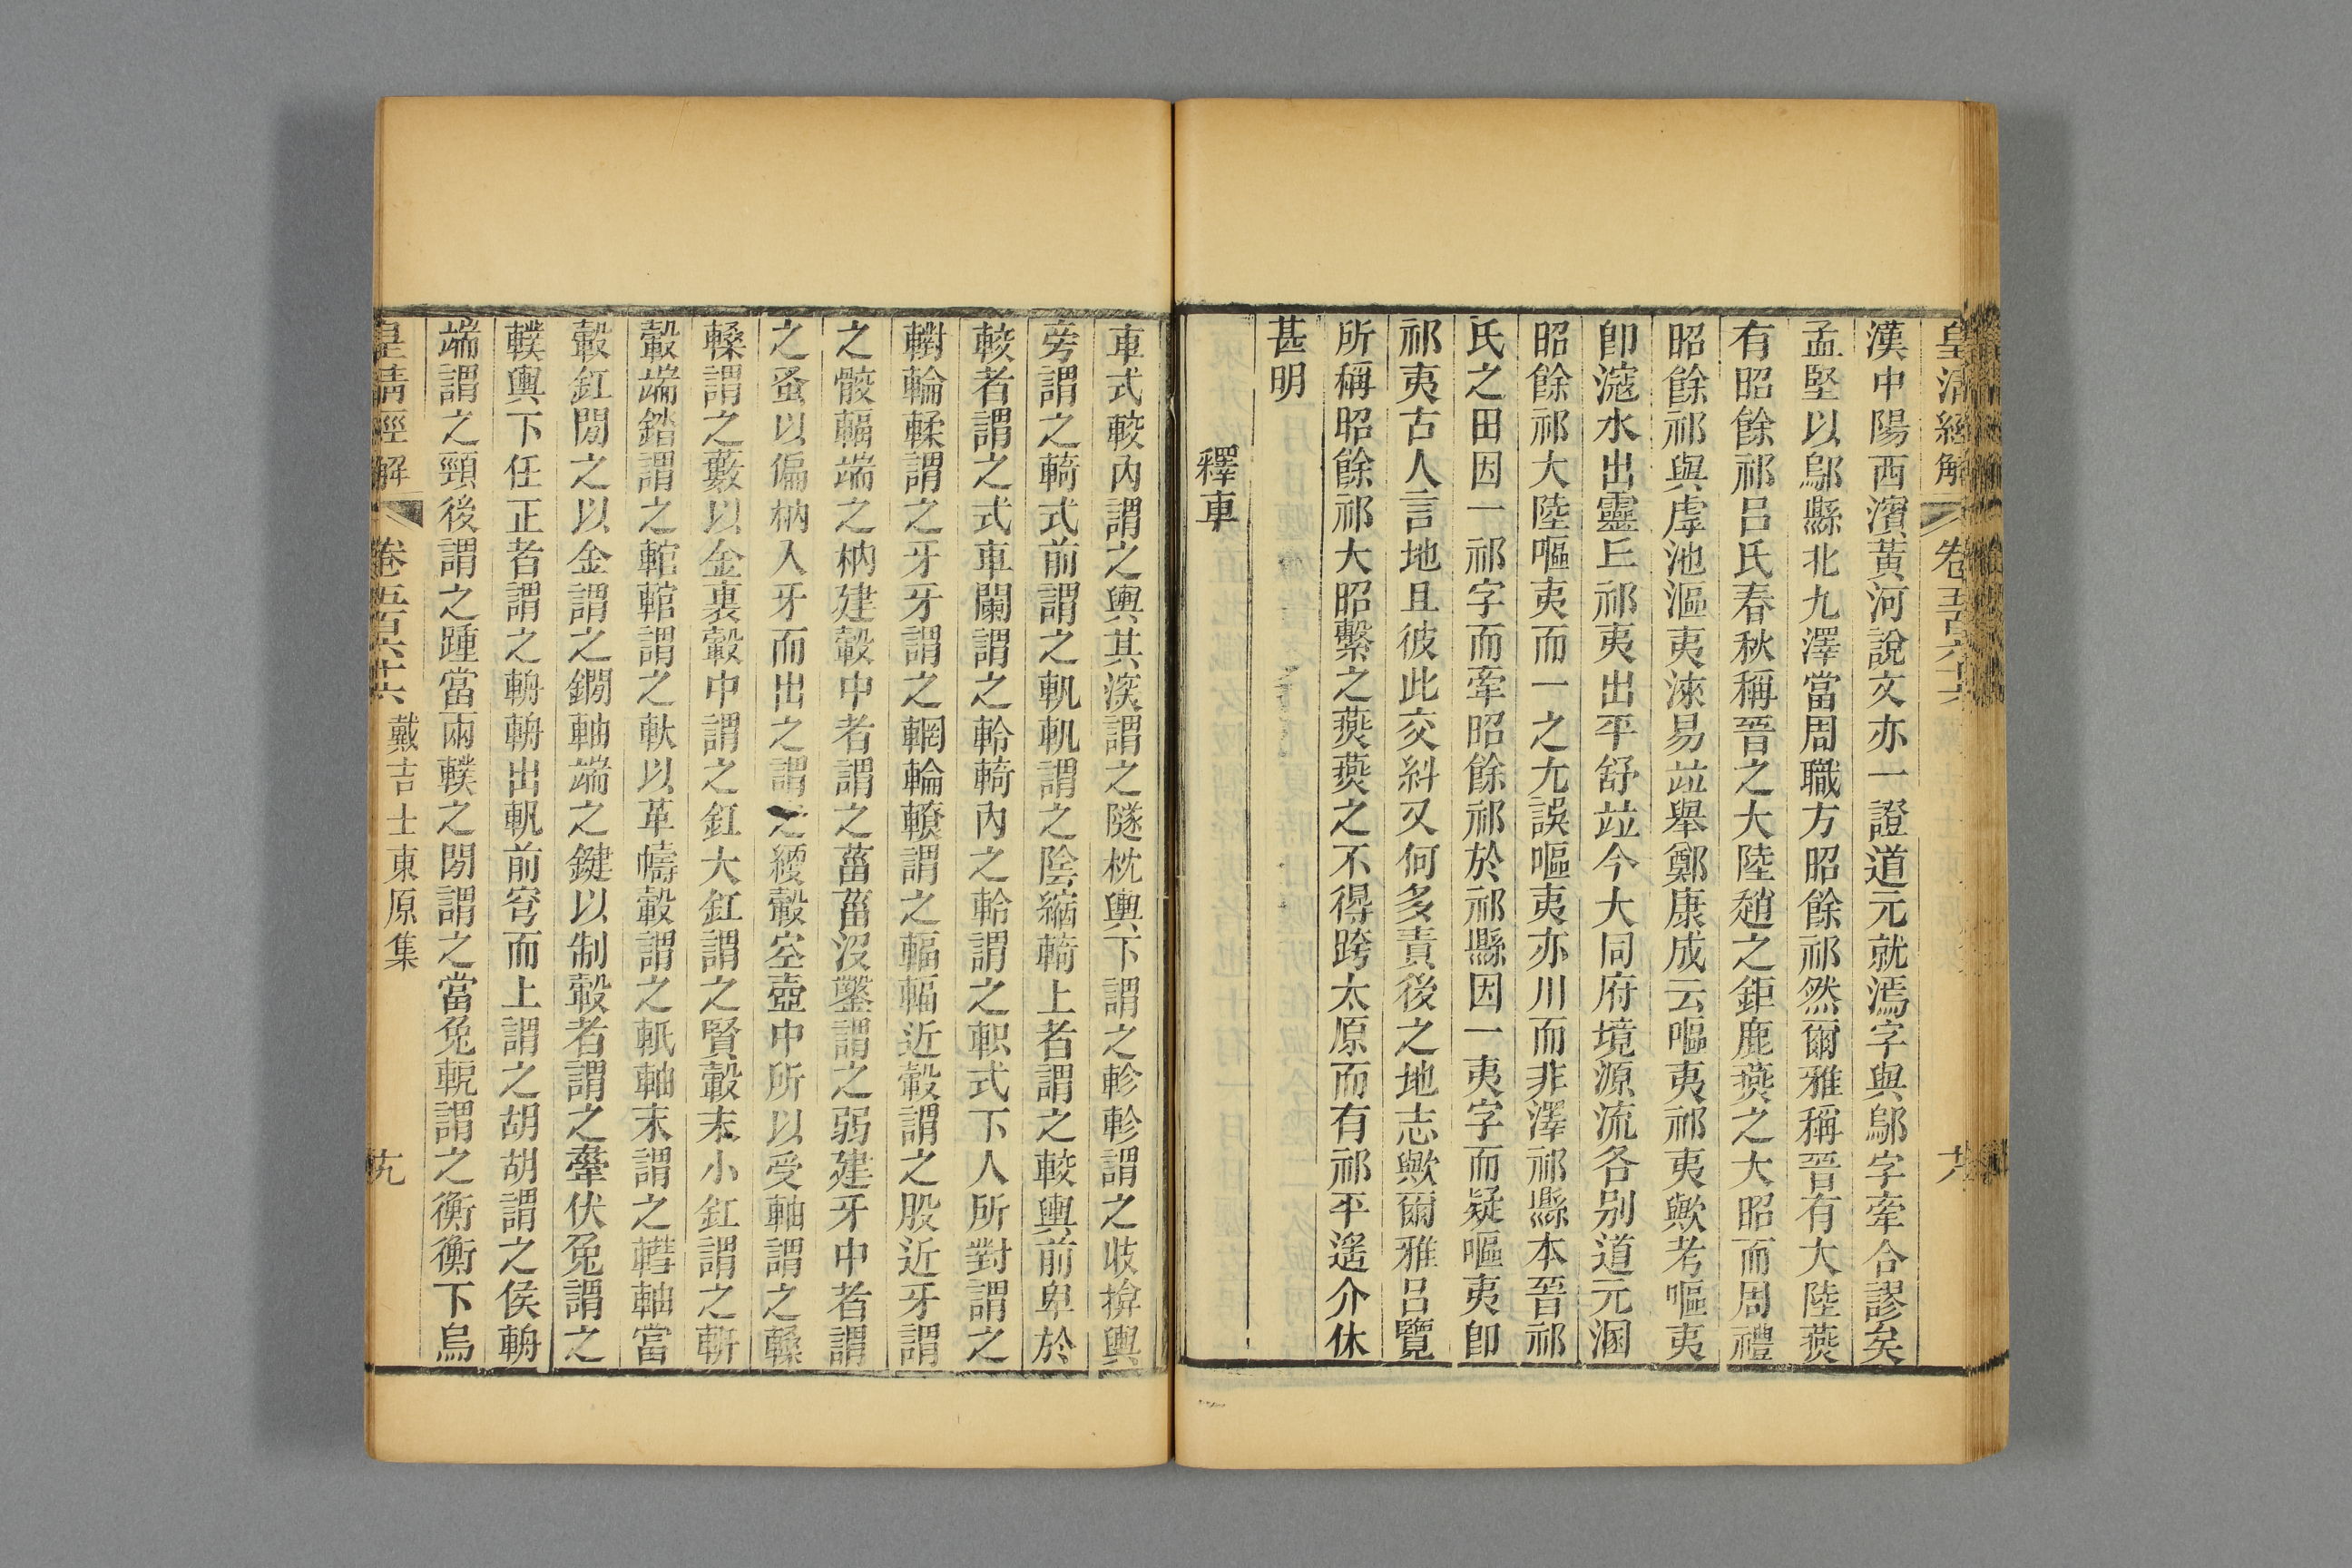 皇清經解 卷五百六十六 十八
漢中陽西濱黃河說文亦一證道元就漹字與鄔字牽合謬矣
孟堅以鄔縣北九澤當周職方昭餘祁然爾雅稱晉有大陸燕
有昭餘祁呂氏春秋稱晉之大陸趙之鉅鹿燕之大昭而周禮
昭餘祁與虖池漚夷淶易竝舉鄭康成云嘔夷祁夷歟考嘔夷
卽滱水出靈丘祁夷出平舒竝今大同府境源流各別道元溷
昭餘祁大陸嘔夷而一之尢誤嘔夷亦川而非澤祁縣本晉祁
氏之田因一祁字而牽昭餘祁於祁縣因一夷字而疑嘔夷卽
祁夷古人言地且彼此交糾又何多責後之地志歟爾雅呂覽
所稱昭餘祁大昭繫之燕燕之不得跨太原而有祁平遥介休
甚明
釋車
車式較內謂之輿其深謂之隧枕輿下謂之軫軫謂之收揜輿
旁謂之輢式前謂之軓軓謂之陰縮輢上者謂之較輿前卑於
較者謂之式車闌謂之軨輢內之軨謂之軹式下人所對謂之
轛輪輮謂之牙牙謂之輞輪轑謂之輻輻近轂謂之股近牙謂
之骹輻端之枘建轂中者謂之菑菑沒鑿謂之弱建牙中者謂
之蚤以偏枘入牙而出之謂之綆轂空壺中所以受軸謂之轑
轑謂之藪以金裏轂中謂之釭大釭謂之賢轂末小釭謂之軹
轂端錔謂之輨輨謂之軑以革幬轂謂之軝軸末謂之轊軸當
轂釭閒之以金謂之鐗軸端之鍵以制轂者謂之舝伏兔謂之
轐輿下任正者謂之輈輈出軓前穹而上謂之胡胡謂之侯輈
端謂之頸後謂之踵當兩轐之閒謂之當兔軏謂之衡衡下烏
皇清經解 卷五百六十六 戴吉士東原集 十九